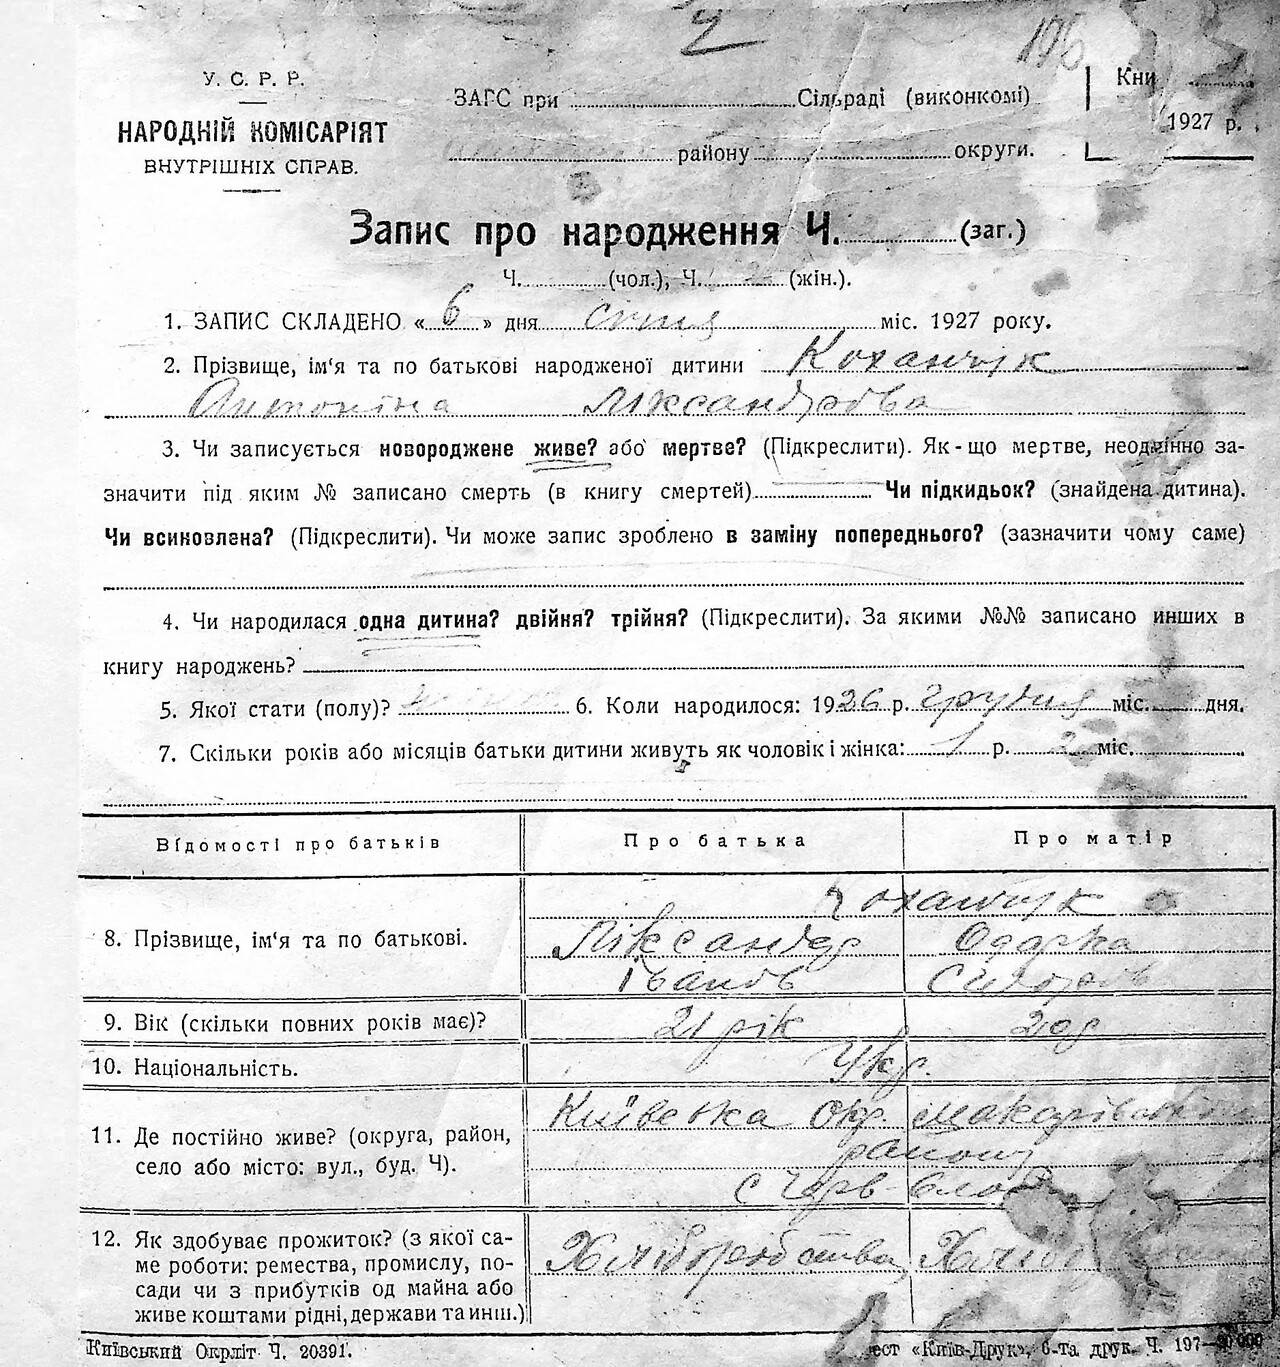 Ч
196
У. С. Р. Р.
НАРОДНІЙ КОМІСАРІЯТ
ВНУТРІШНІХ СПРАВ.
ЗАГС при Сільраді (виконкомі)
району округи.
Кни
1927 р.
Запис про народження Ч. (заг.)
Ч. (чол.), Ч. (жін.).
1. ЗАПИС СКЛАДЕНО « 6 » дня січня міс. 1927 року.
2. Прізвище, ім'я та по батькові народженої дитини Коханчук
Антоніна Ліксандрова
3. Чи записується новороджене живе? або мертве? (Підкреслити). Як-що мертве, неодмінно за-
значити під яким № записано смерть (в книгу смертей) Чи підкидьок? (знайдена дитина).
Чи всиновлена? (Підкреслити). Чи може запис зроблено в заміну попереднього? (зазначити чому саме)
4. Чи народилася одна дитина? двійня? трійня? (Підкреслити). За якими №№ записано инших в
книгу народжень?
5. Якої стати (полу)? 6. Коли народилося: 1926 р. грудня міс. дня.
7. Скільки років або місяців батьки дитини живуть як чоловік і жінка: 1 р. 2 міс.
Відомості про батьків Про батька Про матір
Коханчук
8. Прізвище, ім'я та по батькові. Ліксандр Одарка
Іванов
9. Вік (скільки повних років має)? 21 рік 20 р
10. Національність. Укр.
Київська Окр. Макарівський
11. Де постійно живе? (округа, район, району
село або місто: вул., буд. Ч). с Черв
12. Як здобуває прожиток? (з якої са- Хліборобство Хліб
ме роботи: ремества, промислу, по-
сади чи з прибутків од майна або
живе коштами рідні, держави та инш.)
Київський Окрліт Ч. 20391. ест «Київ-Друк», 6-та друк. Ч. 197